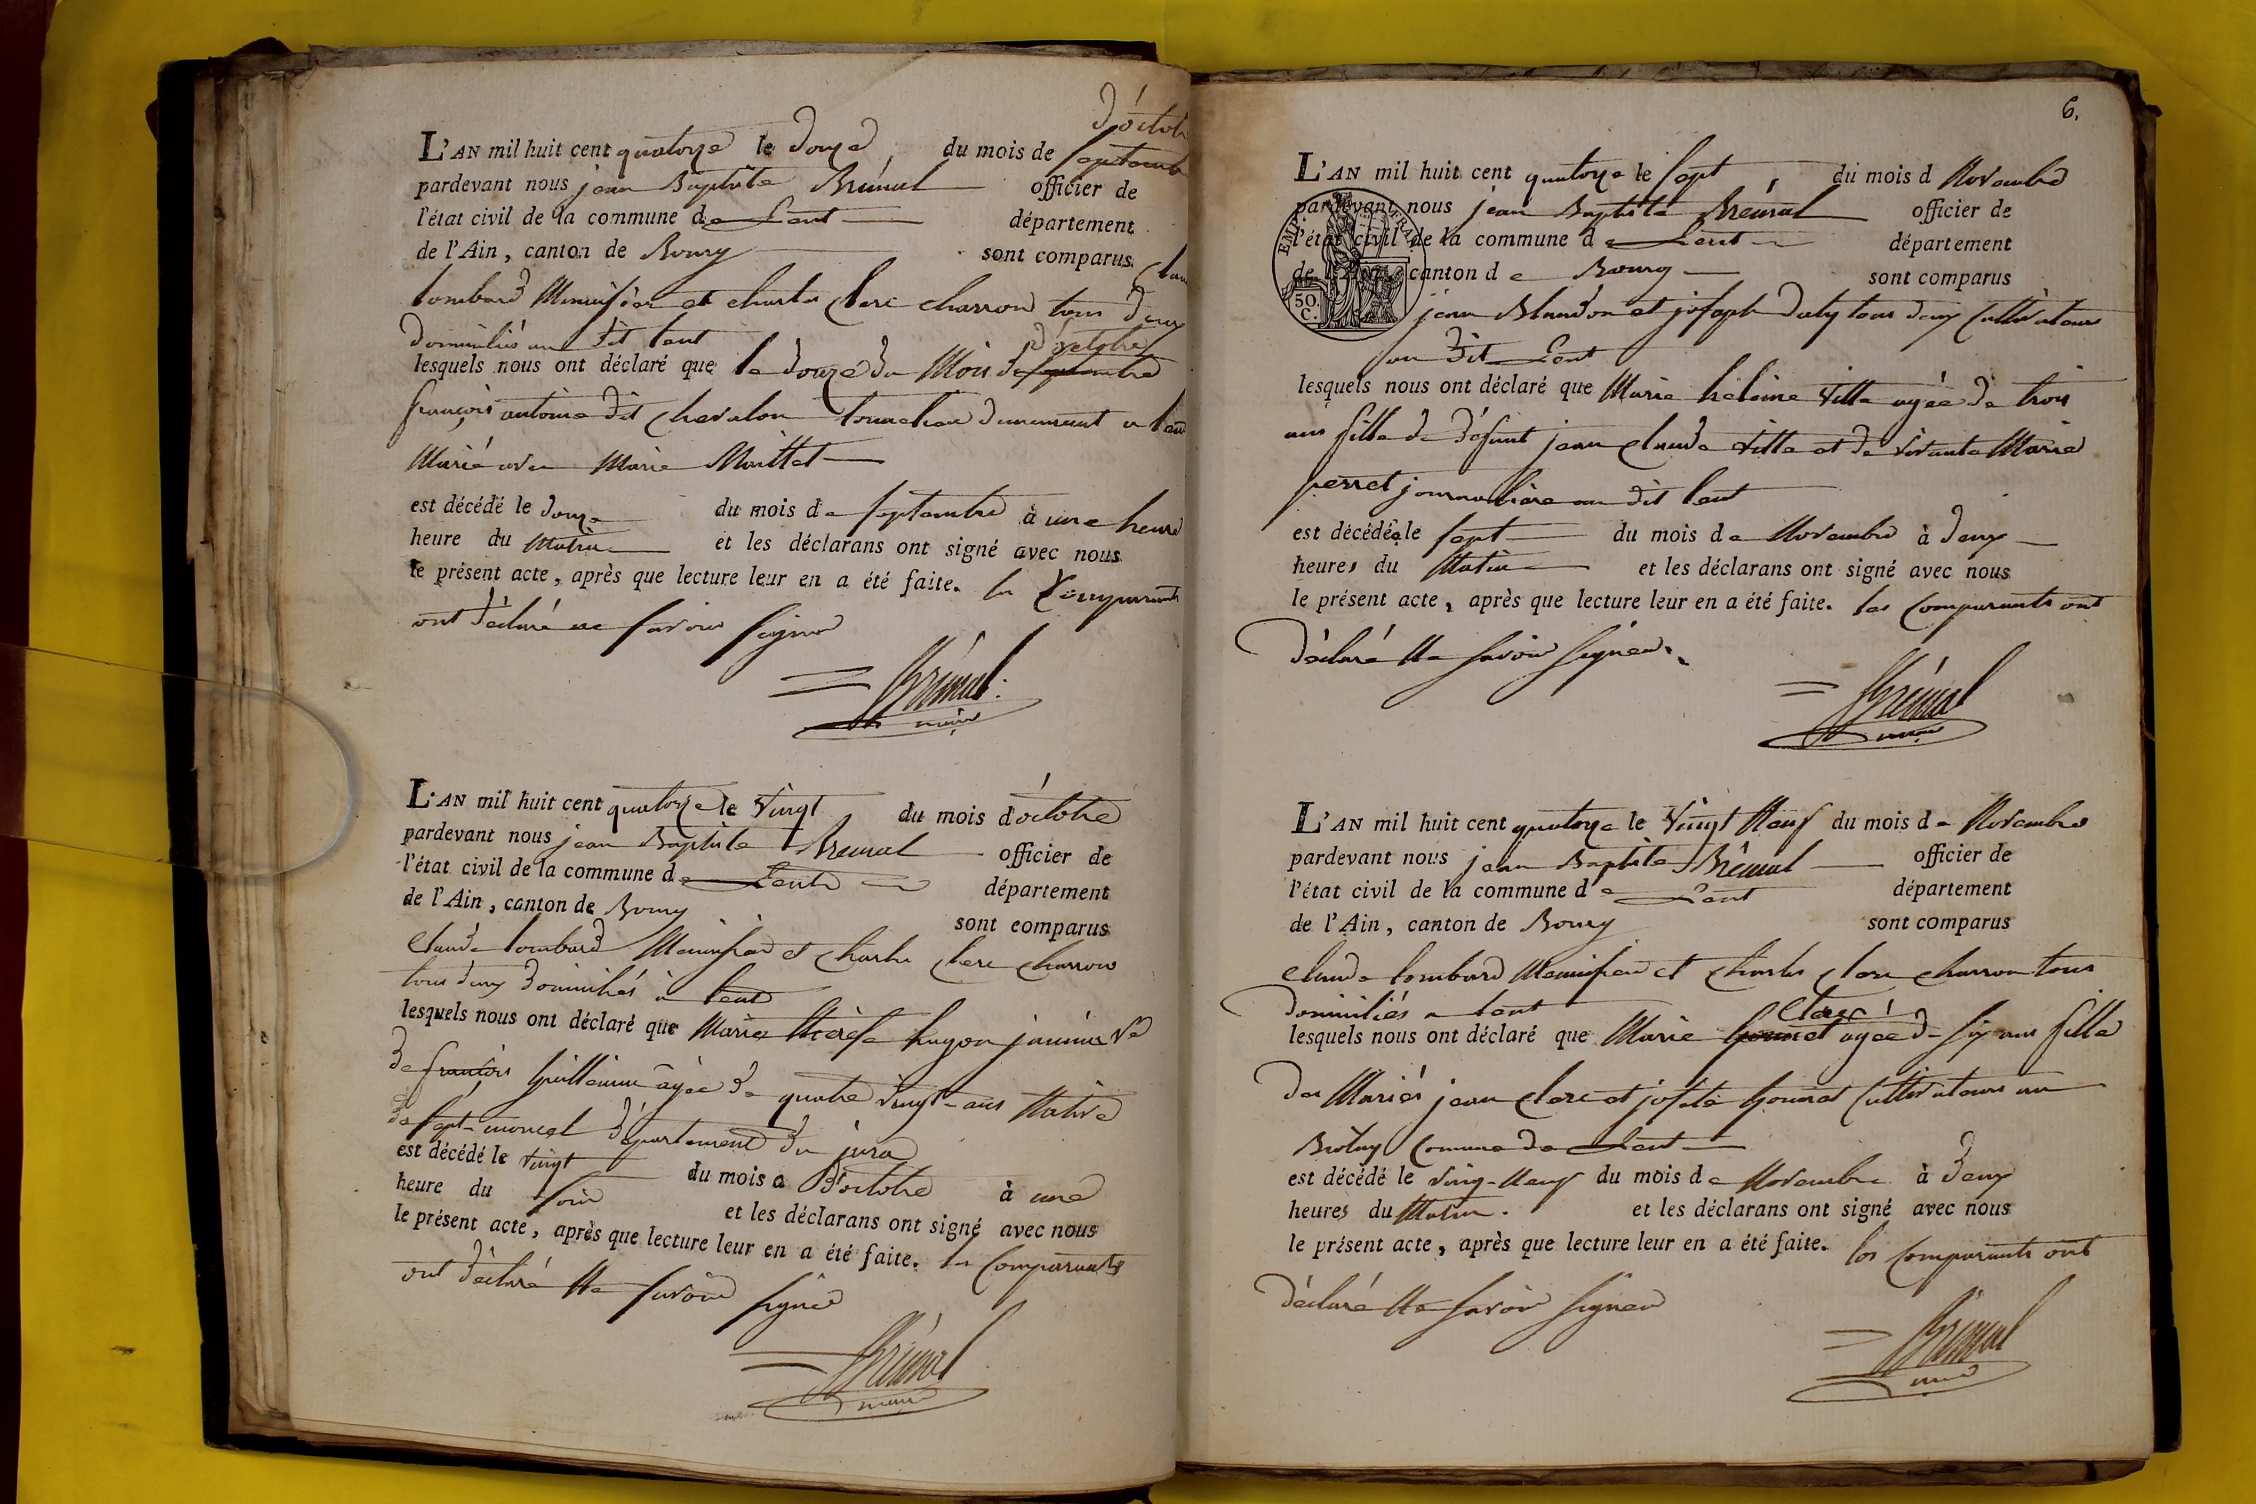 d'octob
L'AN mil huit cent quatorze le douze du mois de septemb
pardevant nous jean Baptiste Brémal officier de
l'état civil de la commune de Lent département
de l'Ain, canton de Bourg sont comparus Clau
lombard Menuisier et charles Clerc charron tous deux
domiciliés au dit lent
d'octobre
lesquels nous ont déclaré que le douze du Mois de septembre
françois antoine dit chevalon demeurant a lent
Marié avec Marie Maillet
est décédé le douze du mois de septembre à une heure
heure du Matin et les déclarans ont signé avec nous
le présent acte, après que lecture leur en a été faite. les Comparants
ont déclaré ne savoir signer
Brémal
maire
L'AN mil huit cent quatorze le vingt du mois d'octobre
pardevant nous jean Baptiste Bremal officier de
l'état civil de la commune de Lent département
de l'Ain, canton de Bourg sont comparus
Claude lombard Menuisier et Charles Clerc Charron
tous deux domiciliés à lent
lesquels nous ont déclaré que Marie therese hugon ve
de françois Guillemin âgée de quatre vingt ans Native
de sept-moncel département du jura
est décédé le vingt du mois d'octobre à une
heure du soir et les déclarans ont signé avec nous
le présent acte, après que lecture leur en a été faite. les Comparants
ont déclaré Ne savoir signer
Brémal
maire
6.
L'AN mil huit cent quatorze le sept du mois d Novembre
pardevant nous jean Baptiste Brémal officier de
l'état civil de la commune de Lent département
de l'Ain, canton de Bourg sont comparus
50.
C.
jean Blandon et joseph Duby tous deux Cultivateurs
au dit Lent
lesquels nous ont déclaré que Marie heleine Vitte agée de trois
ans fille de défunt jean claude Vitte et de vivante Marie
perret journaliere au dit lent
est décédée le sept du mois de Novembre à deux
heures du Matin et les déclarans ont signé avec nous
le présent acte, après que lecture leur en a été faite. les Comparants ont
déclaré Ne savoir signer.
Brémal
maire
L'AN mil huit cent quatorze le vingt Neuf du mois de Novembre
pardevant nous jean Baptiste Brémal officier de
l'état civil de la commune de Lent département
de l'Ain, canton de Bourg sont comparus
Claude lombard Menuisier et Charles Clerc charron tous
domiciliés a lent
Clerc
lesquels nous ont déclaré que Marie Gonnet agée de six ans fille
des Mariés jean Clerc et josete Gonnet Cultivateurs au
Commune de Lent
est décédé le ving-Neuf du mois de Novembre à deux
heures du Matin. et les déclarans ont signé avec nous
le présent acte, après que lecture leur en a été faite. les Comparants ont
déclaré Ne savoir signer
Brémal
maire